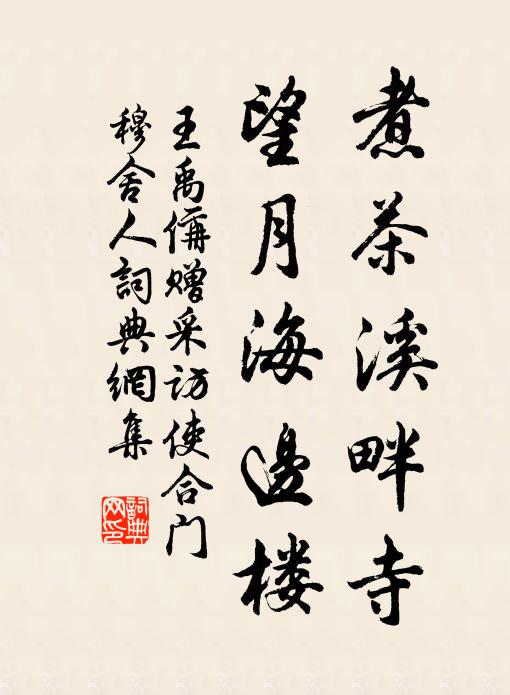 煮茶溪畔寺
望月海邊楼
王禹偁赠采访使合门
穆舍人詞典網集
詞典网印